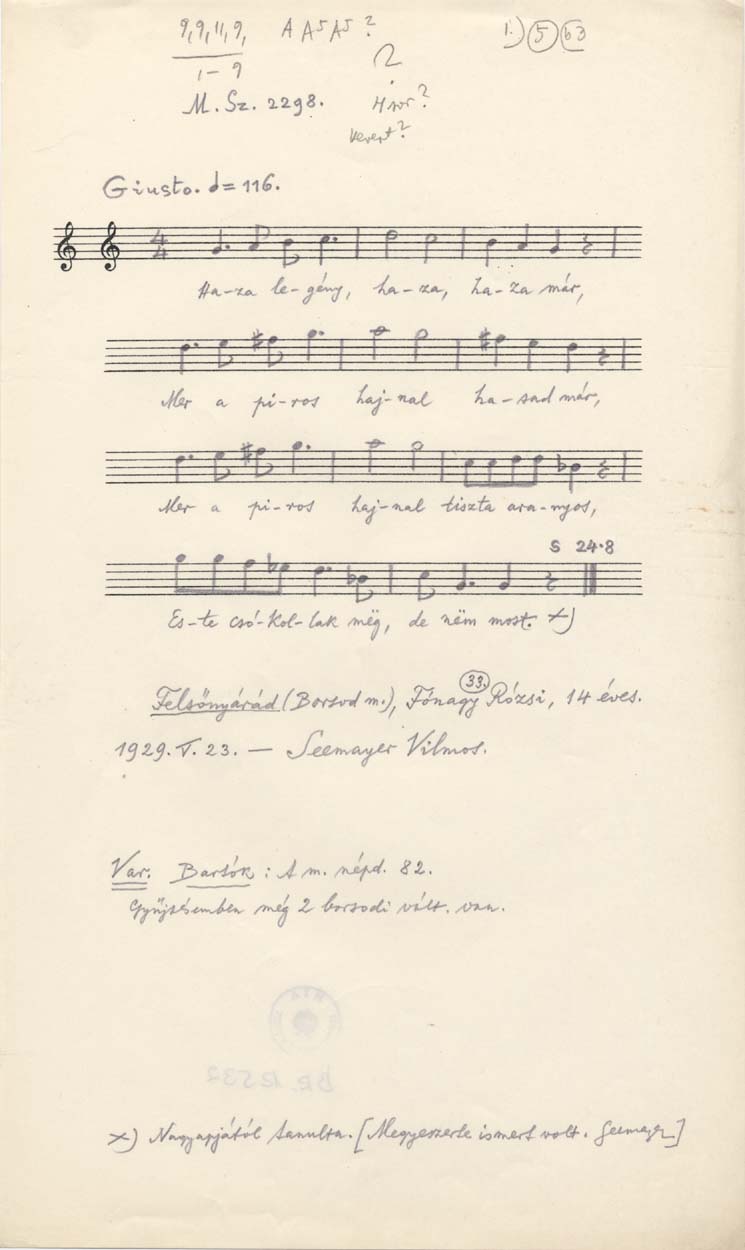 9,9,11,9, A A⁵ A⁵ ? 1.) 5 b3
1–9 ?
M. Sz. 2298. 4 sor?
kevert?
Giusto. 𝅗𝅥= 116.
4
4
Ha-za le-gény, ha-za, ha-za már,
Mer a pi-ros haj-nal ha-sad már,
Mer a pi-ros haj-nal tiszta ara-nyos,
S 24·8
Es-te csó-kol-lak mëg, de nëm most. ×)
33.
Felsőnyárád (Borsod m.), Fónagy Rózsi, 14 éves.
1929. V. 23. — Seemayer Vilmos.
Var. Bartók: A m. népd. 82.
Gyűjtésemben még 2 borsodi vált. van.
BR. 12532
×) Nagyapjától tanulta. [Megyeszerte ismert volt. Seemayer]